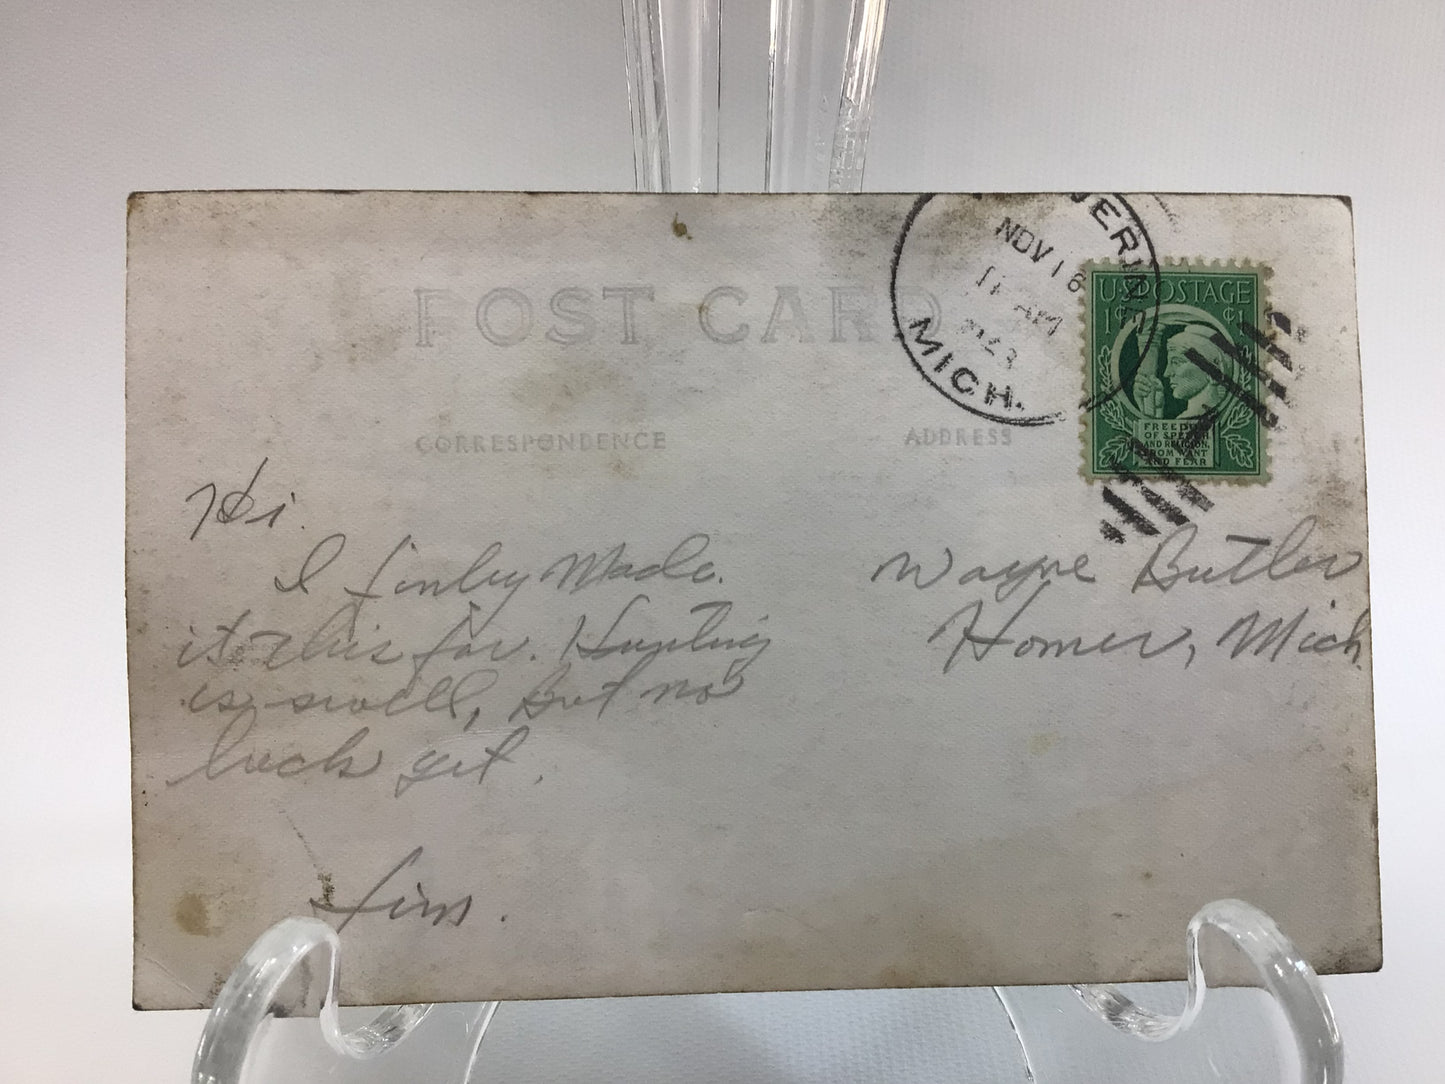 VERINE
NOV 16
11 AM
MICH.
U.S. POSTAGE
1¢ ¢1
FREEDOM
OF SPEECH
AND RELIGION,
FROM WANT
AND FEAR
POST CARD
CORRESPONDENCE ADDRESS
Hi.
I finley Made.
it this far. Hunting
is swell, But no
luck yet.
Jim.
Wayne Butler
Homer, Mich.